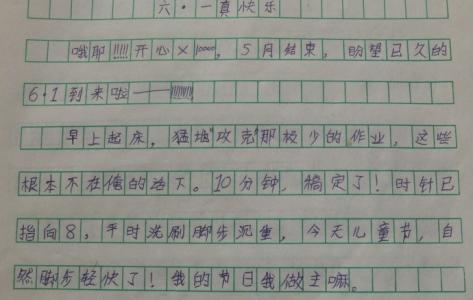 六·一真快乐
哦耶!!!!!开心×10000，5月结束，盼望已久的
6·1到来啦——!!!!!!!!
早上起床，猛地"攻克"那极少的作业，这些
根本不在俺的话下。10分钟，搞定了！时针已
指向8，平时洗刷脚步沉重，今天儿童节，自
然脚步轻快了！我的节日我做主嘛。